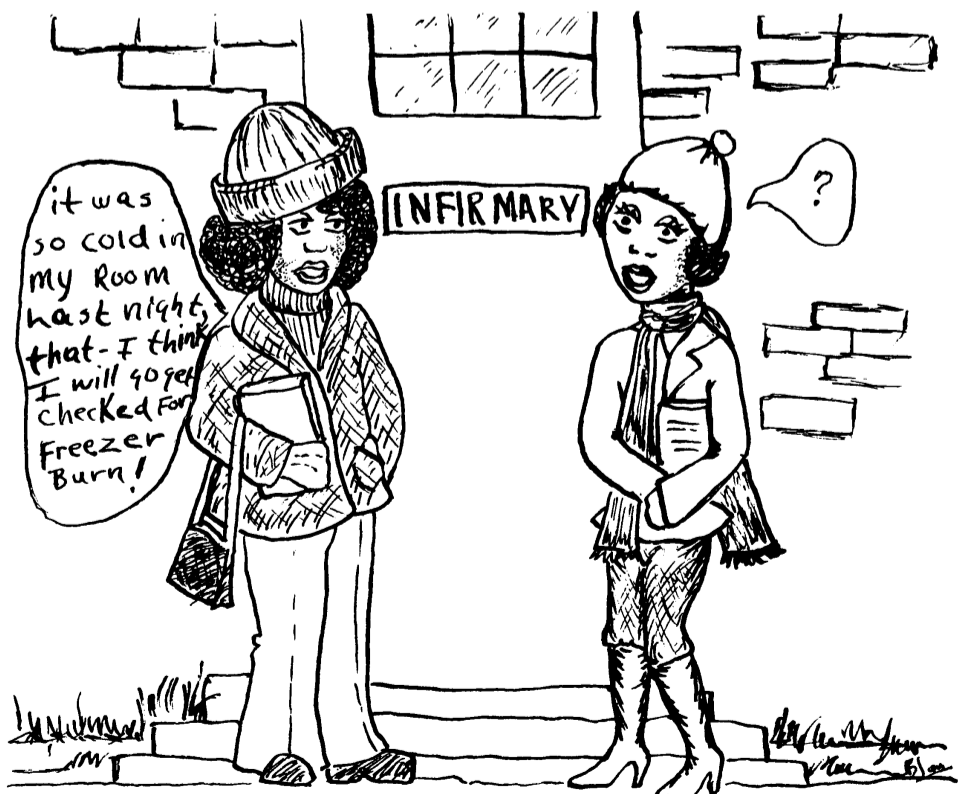 it was
so cold in
my Room
Last night,
that - I think
I will go get
checked For
Freezer
Burn!
INFIRMARY
?